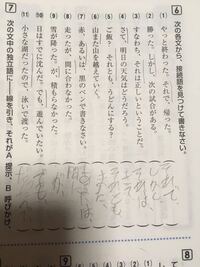 8
6 次の各文から、接続語を見つけて書きなさい。
(1) やっと終わった。それで、帰った。
それで
(2) 勝った。しかし、次の試合がある。
しかし
(3) すなわち、それは正しいということだ。
(4) さて、明日の天気はどうだろう。
(5) ご飯? それとも うどんにする?
それとも
(6) 山また山を越えていく。
また
(7) 赤、あるいは、黒のペンで書きなさい。
(8) 走ったが、間に合わなかった。
(9) 雪が降った。が、積もらなかった。
(10) 日はすでに沈んだ。でも、遊んでいたい。
でも
(11) 小さな湖だったので、泳いで渡った。
7 次の文中の独立語に―線を引き、それがA 提示、B 呼びかけ、
9